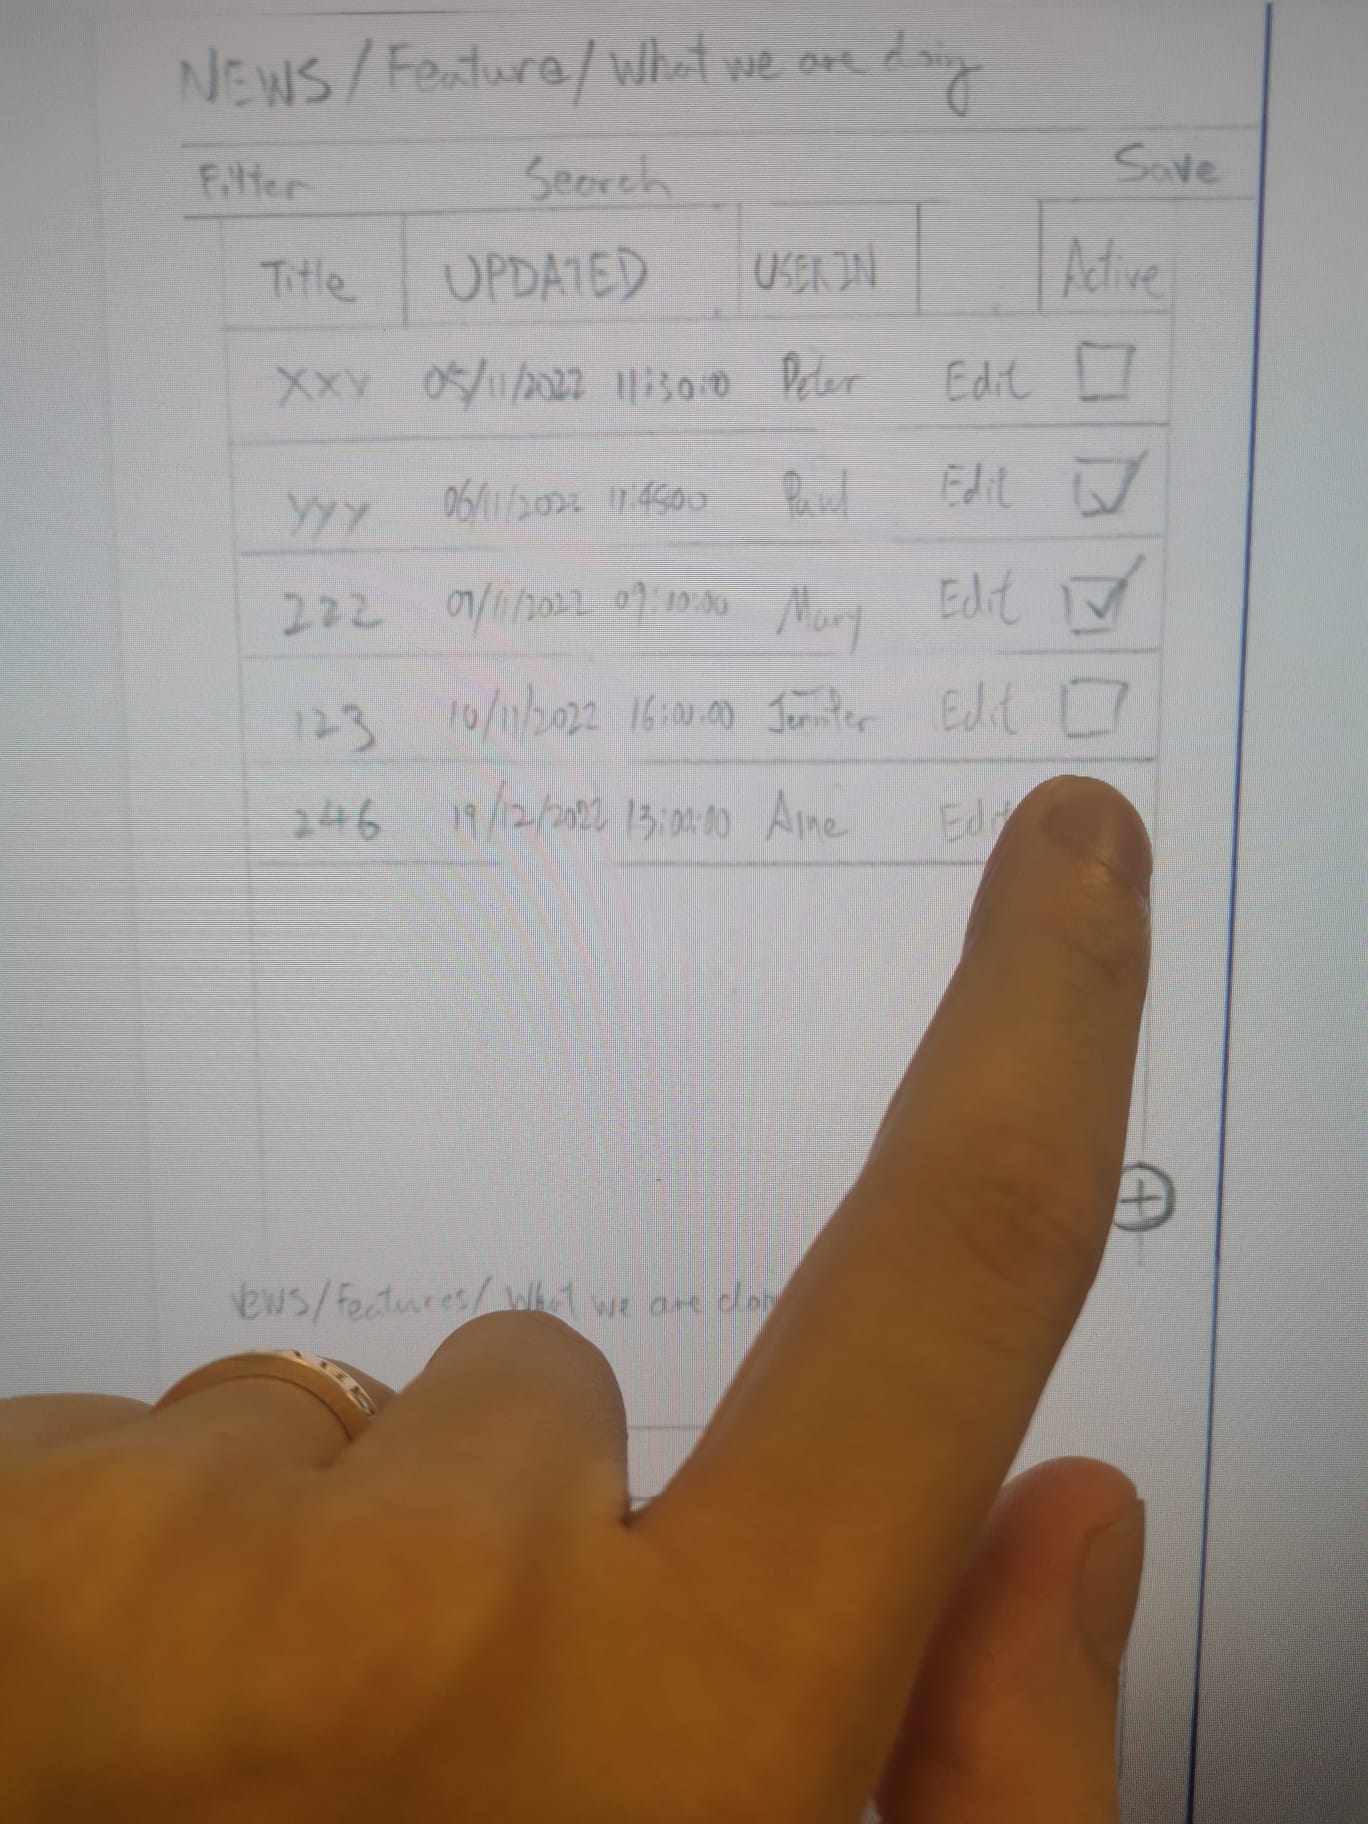 NEWS/Feature/What we are doing
Filter Search Save
Title UPDATED USER IN Active
XXY 05/11/2022 11:30:10 Peter Edit
YYY 06/11/2022 17:4500 Paul Edit
222 07/11/2022 09:10:00 Mary Edit
123 10/11/2022 16:00:00 Jennifer Edit
246 19/12/2022 13:00:00 Edit
+
News/Features/What we are